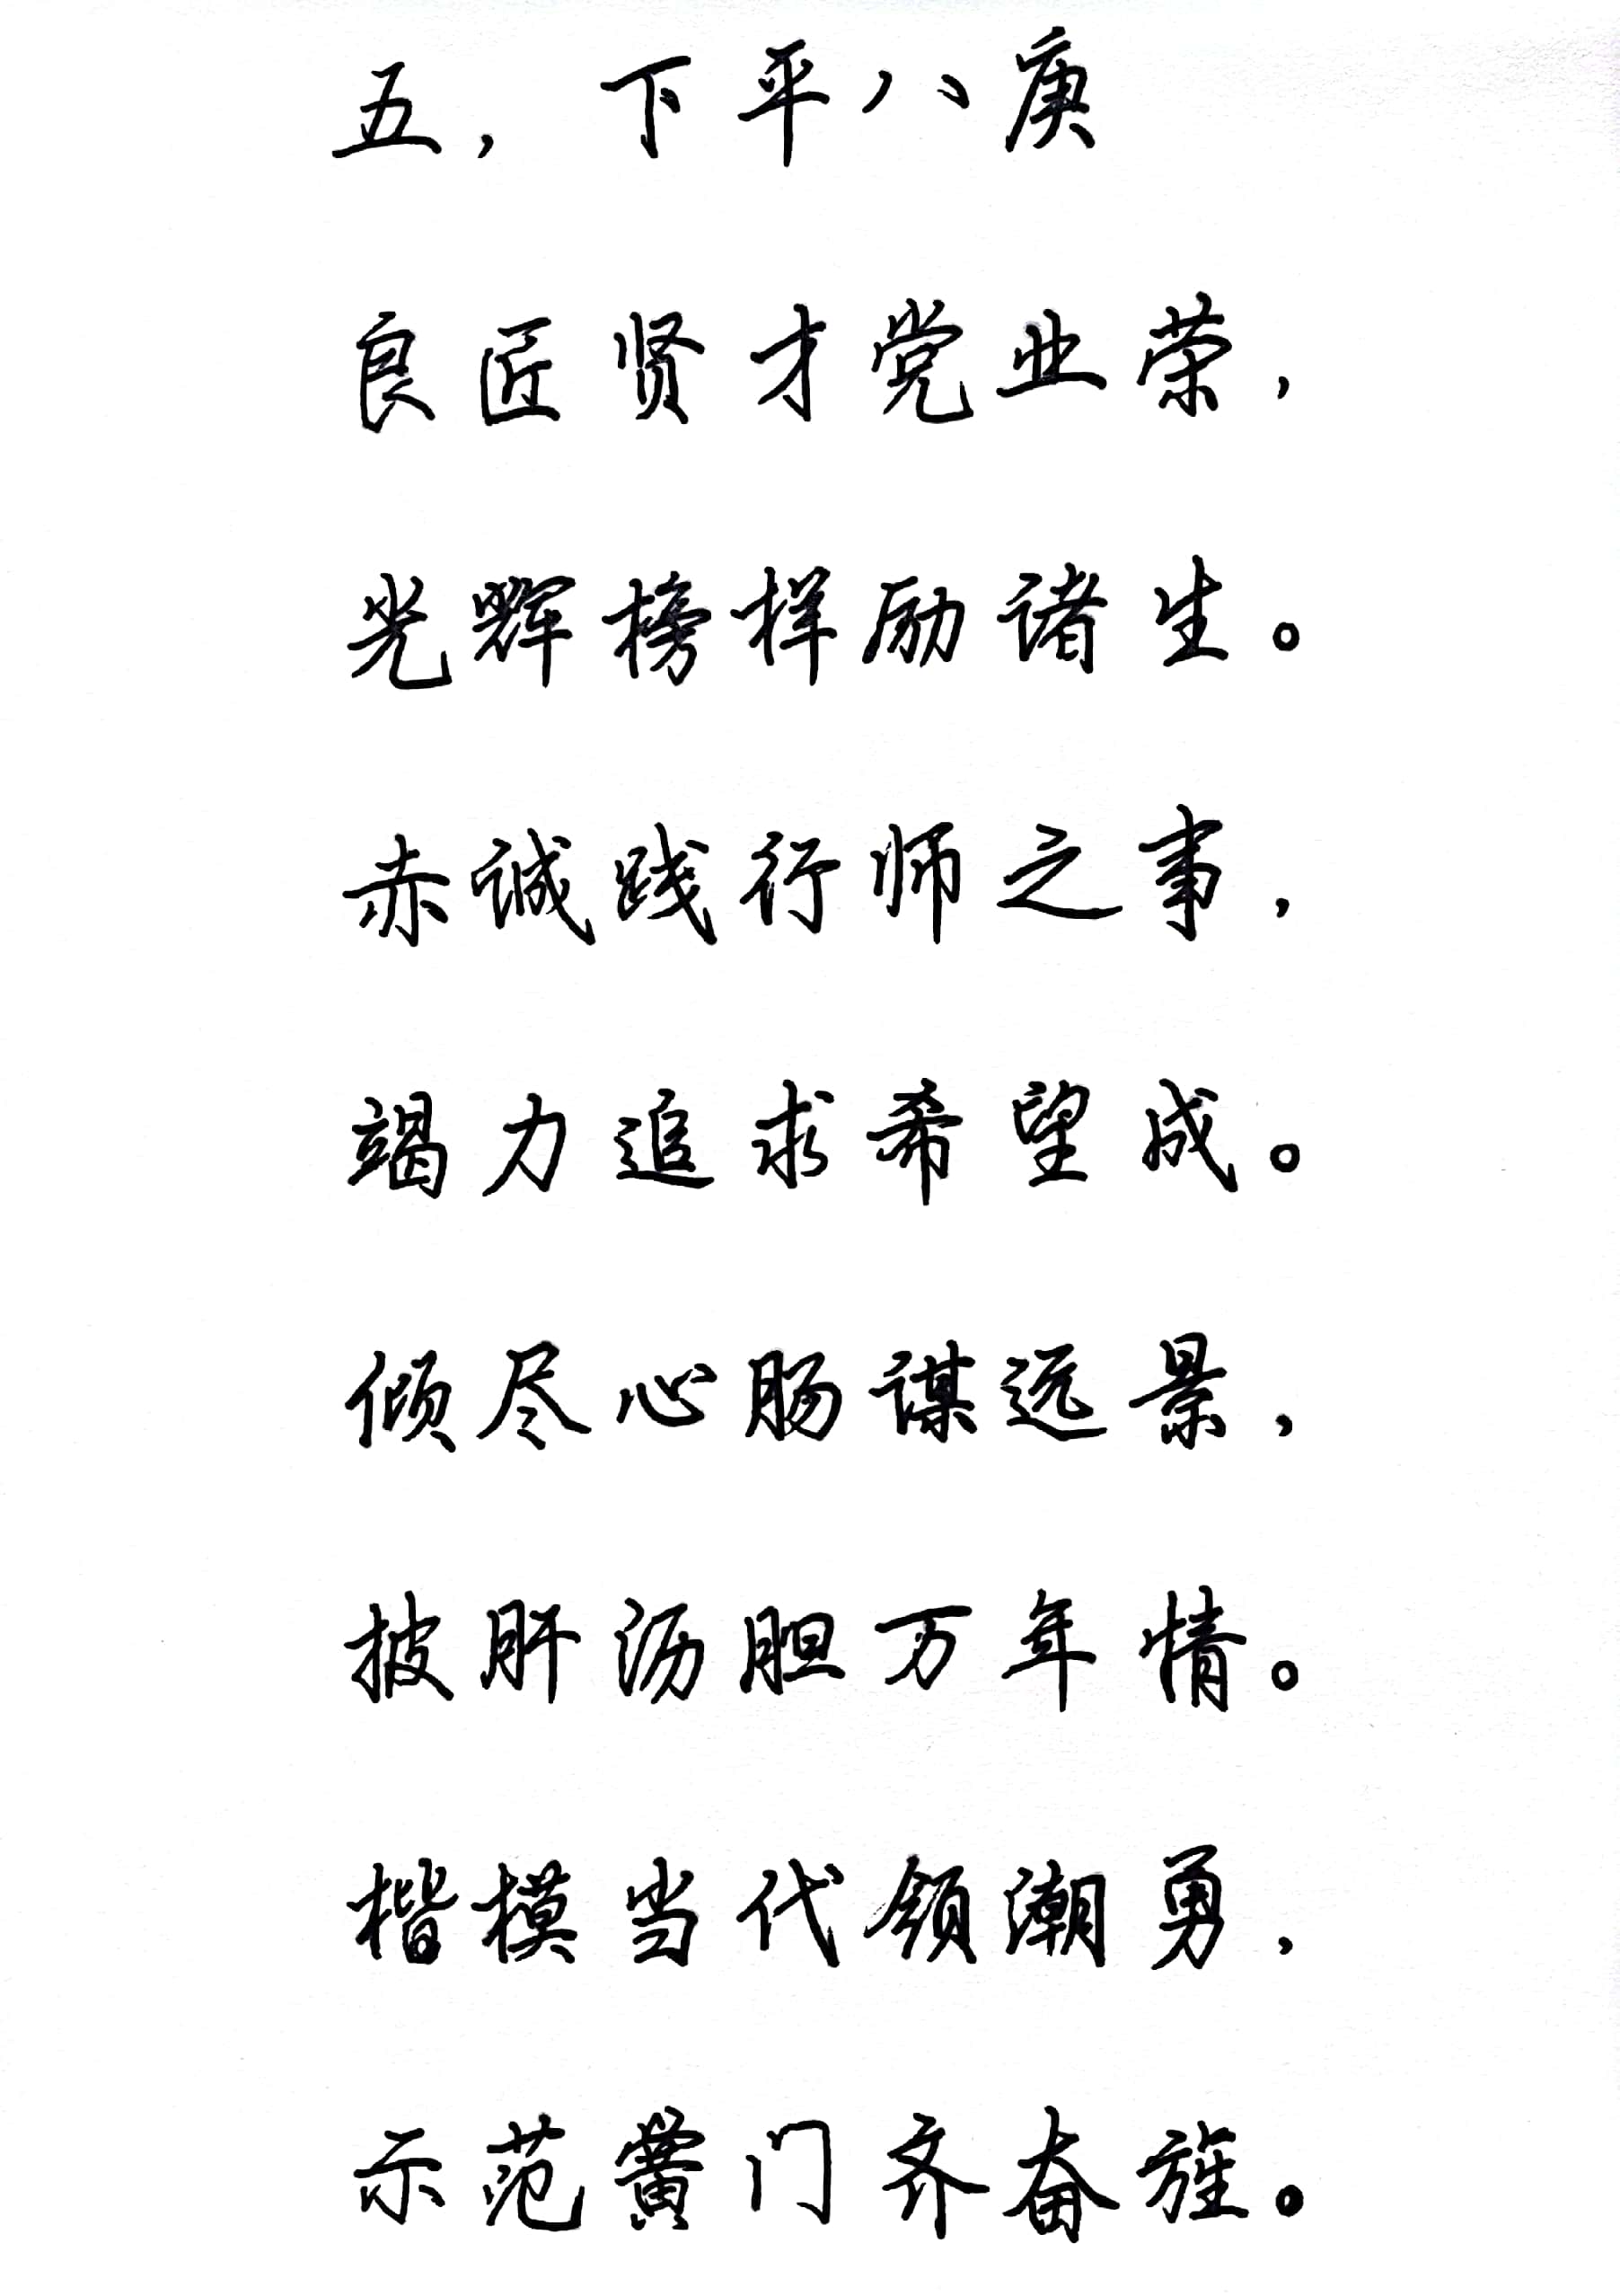 五，下平八庚
良匠贤才党业荣，
光辉榜样励诸生。
赤诚践行师之事，
竭力追求希望成。
倾尽心肠谋远景，
披肝沥胆万年情。
楷模当代领潮勇，
示范黉门齐奋旌。